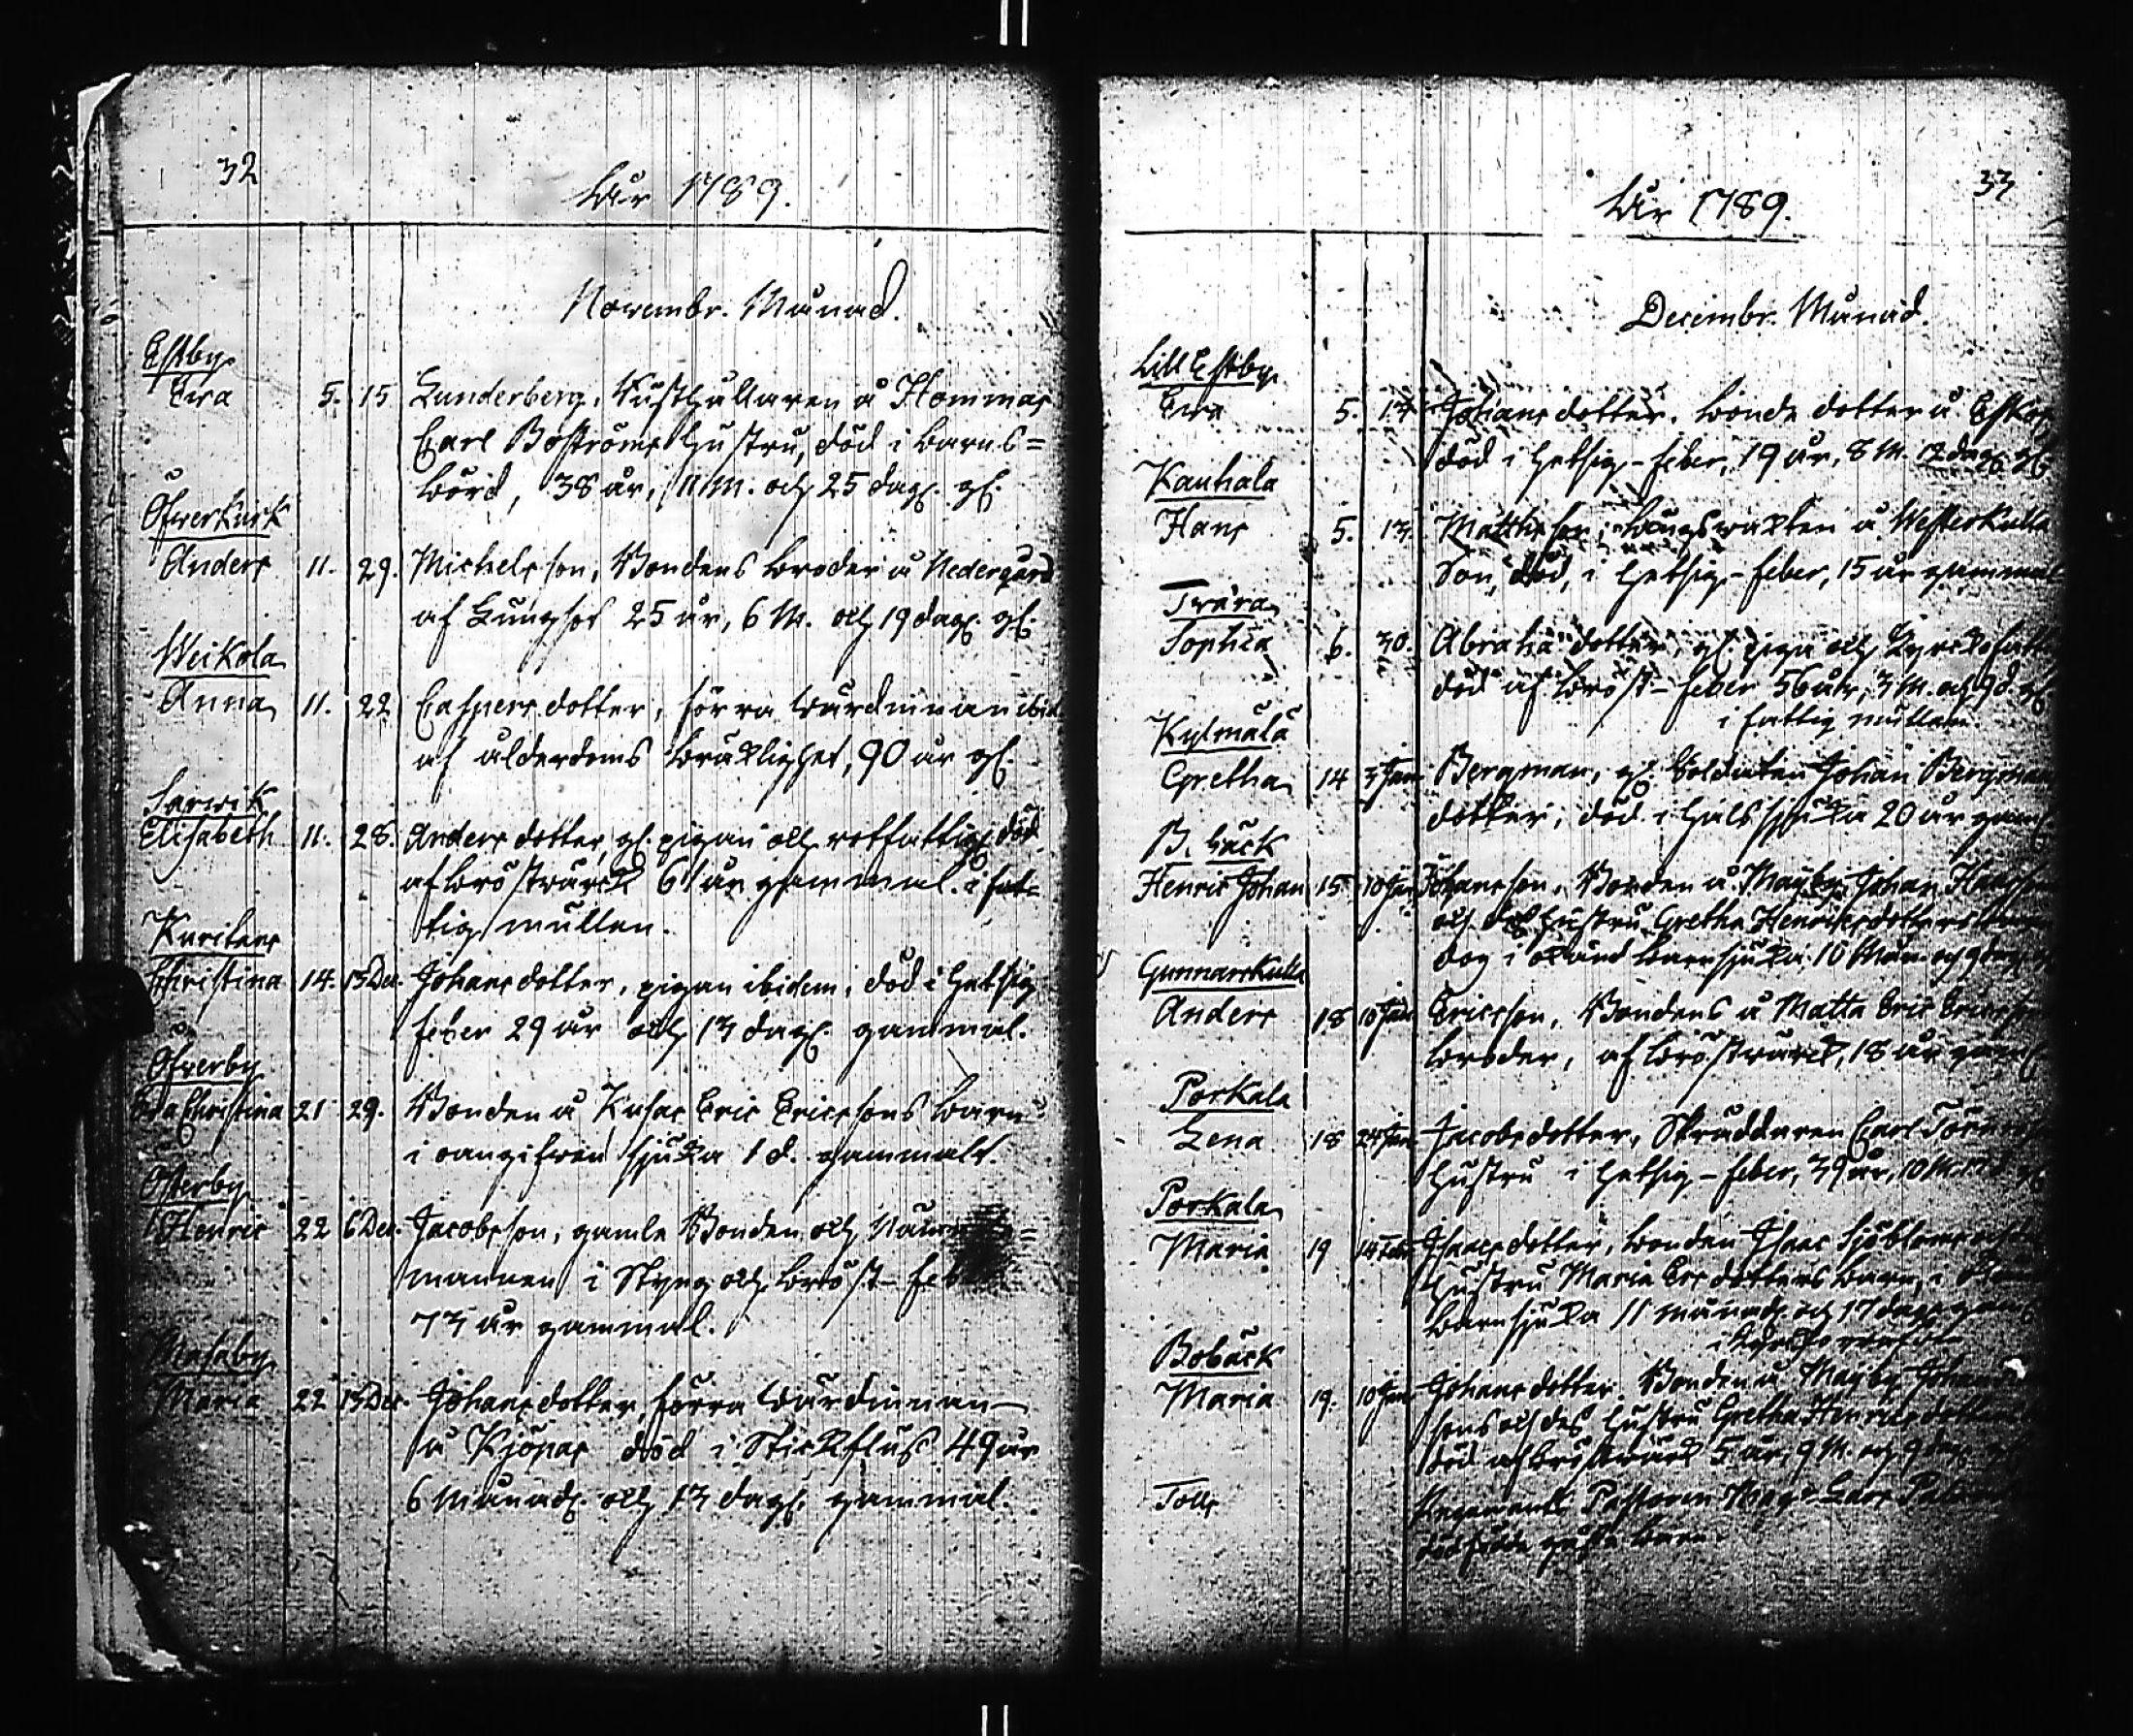 32
Åhr 1789.
Novembr. Månad.
Estby
Eva 5. 15 Lunderberg, Rusthållaren å Hommas
Carl Boströms Hustru, död i barns=
börd, 38 år, 11 M. och 25 dag. gl.
Öfverkurk
Anders 11. 29. Michelsson, Bondens broder å Nedergård
af Lungsot 25 år, 6 M. och 19 dag. gl.
Weikola
Anna 11. 22 Caspersdotter, förra wärdinnan ibid.
af ålderdoms bräcklighet, 90 år gl.
Sarwik
Elisabeth 11. 28. Andersdotter, gl. pigan och rotfattig död
af bröstwärck 61 år gammal. i fat=
tig mullen.
Kuritans
Christina 14. 13 Dec. Johansdotter, pigan ibidem, död i Hetsig
feber 29 år och 13 dag. gammal.
Öfverby
Eva Christina 21 29. Bonden å Kusas Eric Ericssons barn
i oangifwen sjuka 1 d. gammalt.
Österby
Henric 22 6 Dec. Jacobsson, gamle Bonden och
mannen i Styng och bröst-feber
73 år gammal.
Masaby
Maria 22 13 Dec. Johansdotter, förra wärdinnan
å Kjöpas död i Stickfluss 49 år
6 månad. och 13 dag. gammal.
33
Åhr 1789.
Decembr. Månad.
Lill Estby
Eva 5. 13 Johansdotter. bonde dotter å
död i hetsig-feber, 19 år, 8 M. 12 dag. gl.
Kauhala
Hans 5. 13. Matthsson, Westerkulla
Son, död, i hetsig-feber, 15 år gammal
Twära
Sophia 6. 30. Abrahãdotter, gl. piga och
död af bröst-feber 56 år, 3 M. och 9 d. gl.
i fattig mullen.
Kylmälä
Gretha 14 3 Jan Bergman, gl. Soldaten Johan Bergmans
dotter, död i halssjuka 20 år gam
B. bäck
Henric Johan 15 10 Jan Johansson, Bonden å Mayby Johan
och des hustru Gretha Henricsdotters
dog i okänd barnsjuka 10 Mån. og 9 dag.
Gunnarskulla
Anders 18 10 Jan Ericsson, Bondens å Matta Eric Ericssons
broder, af bröstwärck, 18 år gam
Porkala
Lena 18 24 Jan Jacobsdotter, Skräddaren Carl
hustru i hetsig-feber, 39 år, 10 M. 17 d.
Porkala
Maria 19 14 Isaacsdotter, bonden Isaac Sjöbloms
hustru Maria dotters barn, i
barnsjuka 11 månad. och 17 dag.
Bobäck
Maria 19. 10 Jan Johansdotter. Bonden å Mayby
sons och des hustru Gretha Henricsdotters
död af bröstwärck 5 år, 9 M. och 9 dag.
Tolls Regements Pastoren Mag. Lars
dödfödda barn.